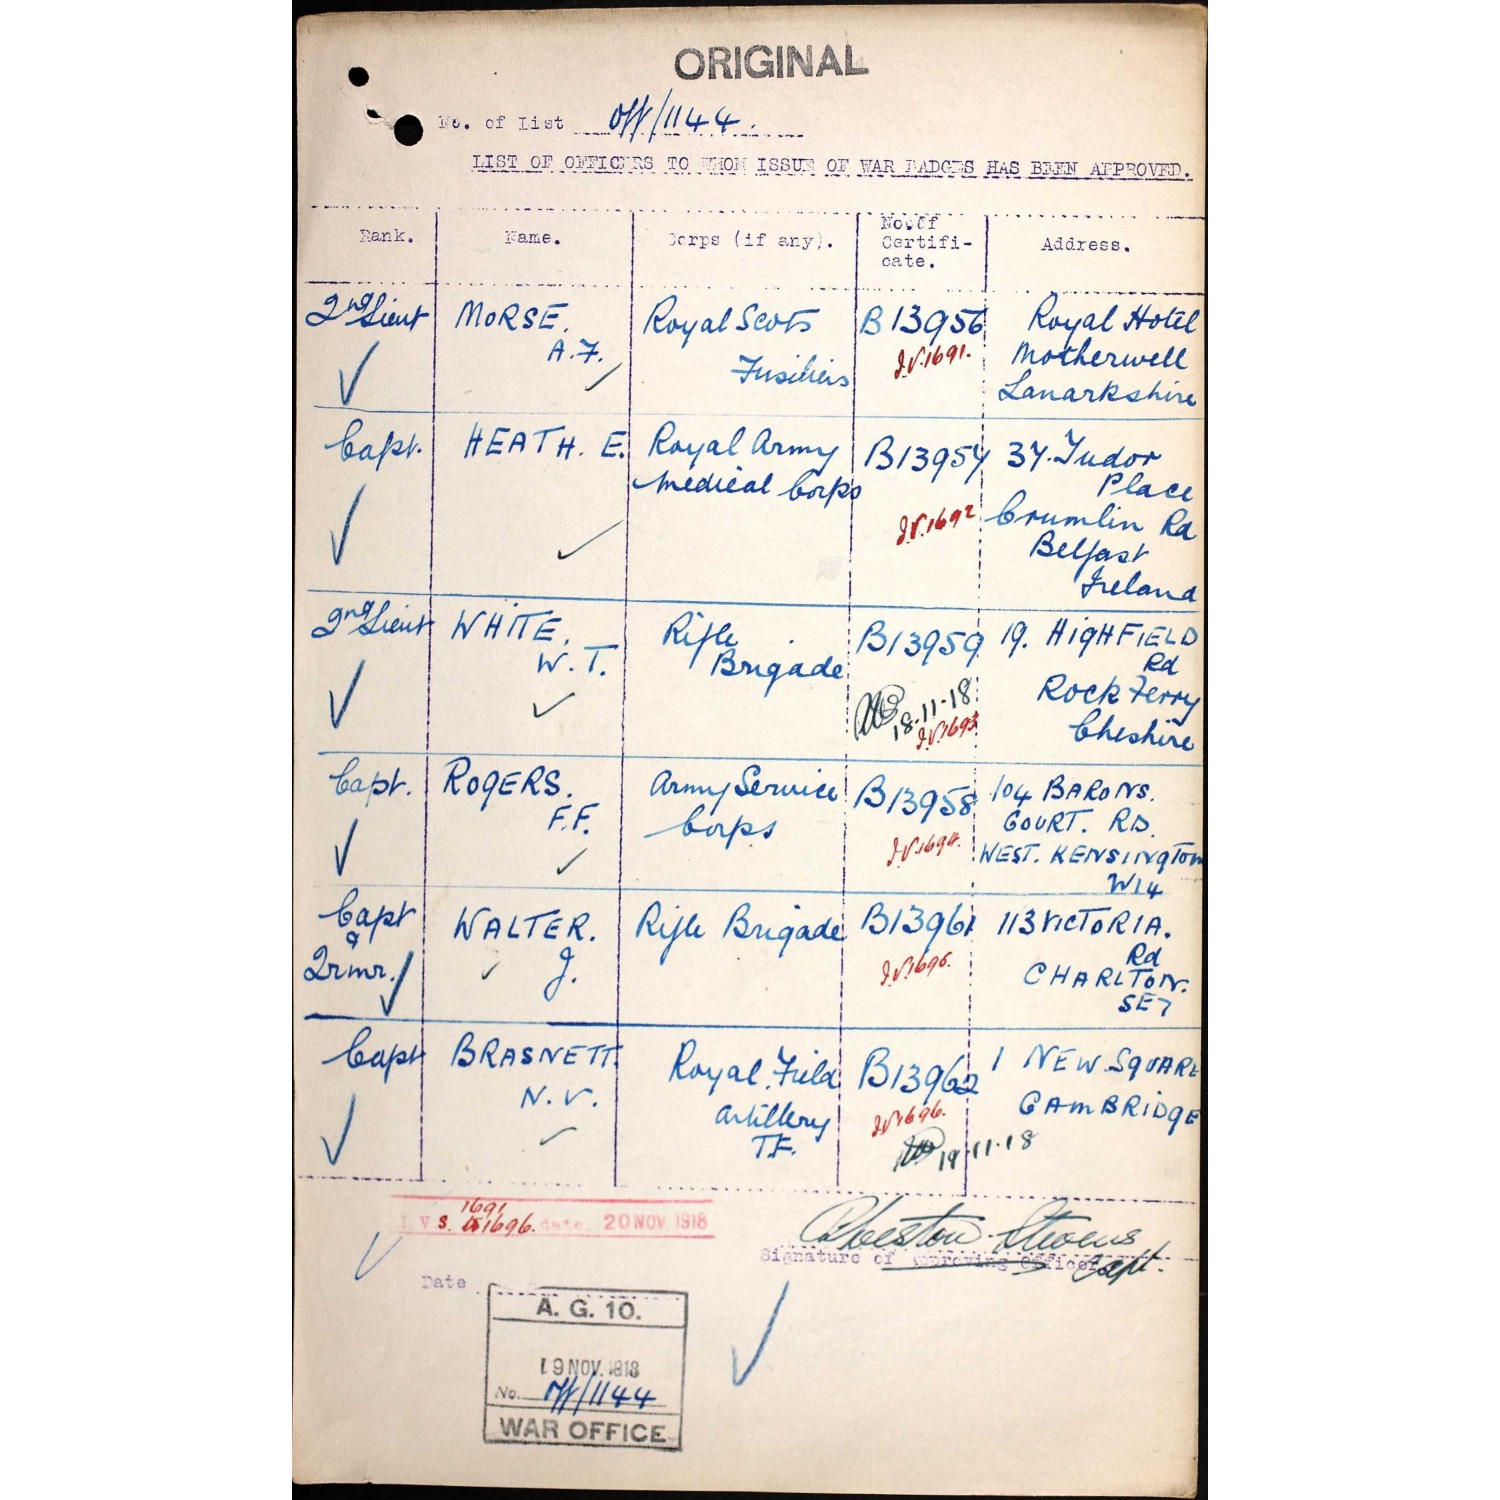 ORIGINAL
No. of List Off/1144.
LIST OF OFFICERS TO WHOM ISSUE OF WAR BADGES HAS BEEN APPROVED.
Rank. Name. Corps (if any). No. of Certifi- cate. Address.
2nd Lieut MORSE. Royal Scots B13956 Royal Hotel
A.F. Fusiliers J.V.1691. Motherwell
Lanarkshire
Capt. HEATH. E. Royal Army B13957 37. Tudor
Medical Corps Place
J.V.1692 Crumlin Rd
Belfast
Ireland
2nd Lieut WHITE. Rifle B13959 19. HIGHFIELD
W.T. Brigade Rd
18.11.18 Rock Ferry
J.V.1693 Cheshire
Capt. ROGERS. Army Service B13958 104 BARONS.
F.F. Corps COURT. RD.
J.V.1694. WEST. KENSINGTON
W14
Capt WALTER. Rifle Brigade B13961 113 VICTORIA.
& Rd
Qrmr. J. J.V.1695. CHARLTON.
SE7
Capt BRASNETT. Royal Field B13962 1 NEW SQUARE
N.V. Artillery J.V.1696. CAMBRIDGE
T.F. 19.11.18
1691
V S. to 1696. date 20 NOV. 1918
Stevens
Signature of Approving Officer Capt.
Date
A. G. 10.
19 NOV. 1918
No. Off/1144
WAR OFFICE